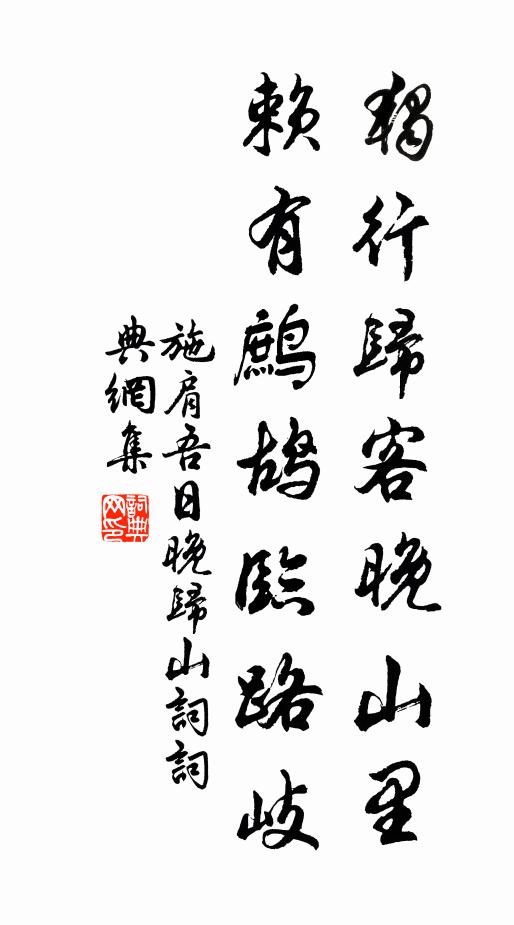 獨行歸客晚山里
賴有鷓鴣臨路岐
施肩吾日晚歸山詞詞
典網集
詞典网印